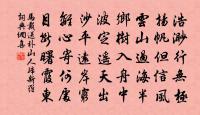 浩渺行無極
揚帆但信風
雲山過海半
鄉樹入舟中
波定遙天出
沙平遠岸窮
離心寄何處
目斷曙霞東
馬戴送朴山人歸新羅
詞典網